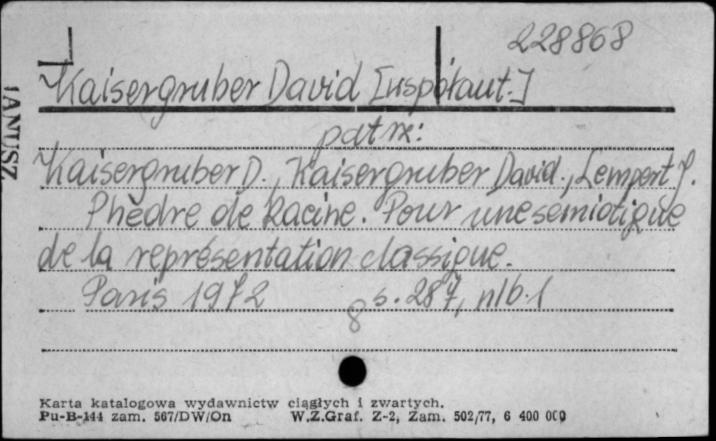 228868
Kaisergruber David [współaut.]
patrz:
JANUSZ
Kaisergruber D., Kaisergruber David., Lempert J.
Phèdre de Racine. Pour une sémiotique
de la représentation classique.
Paris 1972 8 s. 287, nlb. 1
Karta katalogowa wydawnictw ciągłych i zwartych.
Pu-B-144 zam. 567/DW/On W.Z.Graf. Z-2, Zam. 502/77, 6 400 000